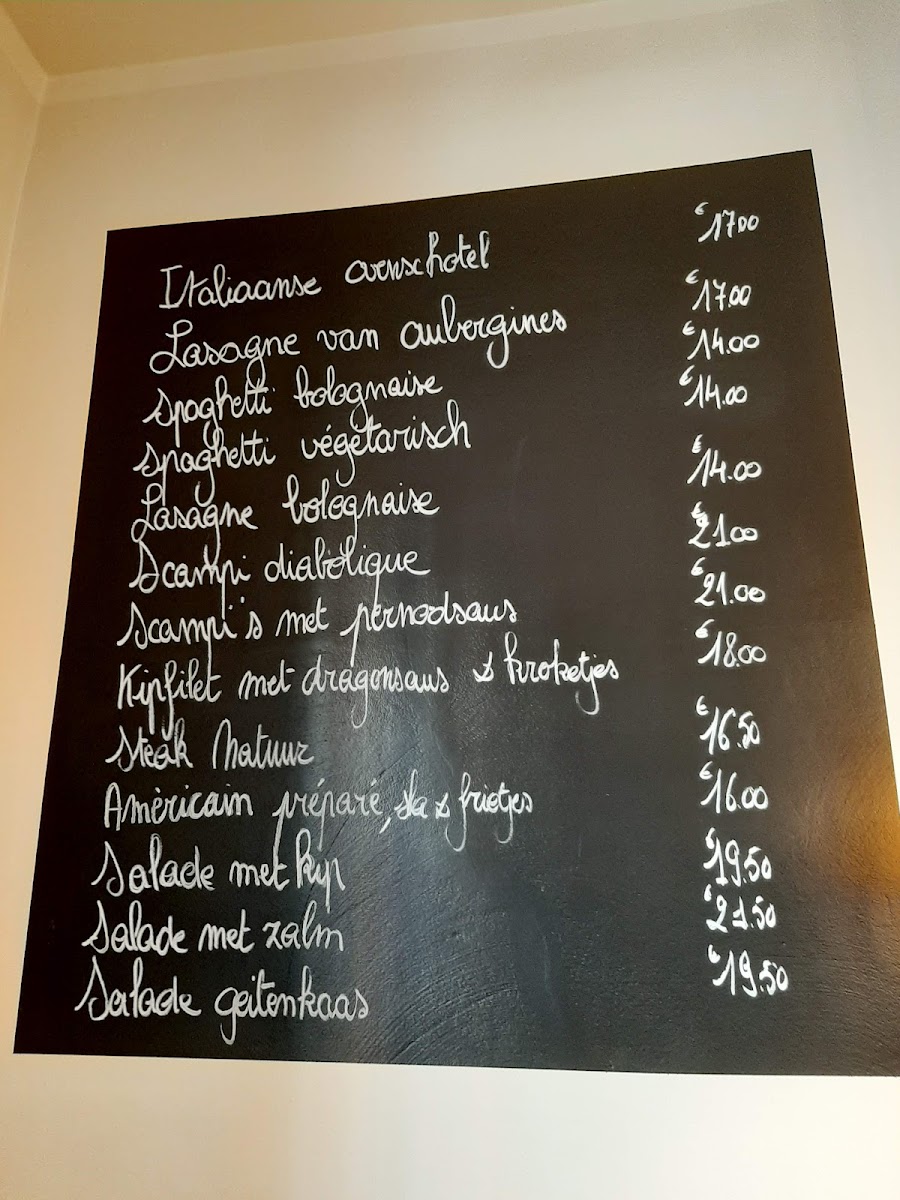 Italiaanse ovenschotel €17.00
Lasagne van aubergines €17.00
Spaghetti bolognaise €14.00
Spaghetti végetarisch €14.00
Lasagne bolognaise €14.00
Scampi diabolique €21.00
Scampi's met pernodsaus €21.00
Kipfilet met dragonsaus & kroketjes €18.00
Steak Natuur €16.50
Américain préparé, sla & frietjes €16.00
Salade met kip €19.50
Salade met zalm €21.50
Salade geitenkaas €19.50